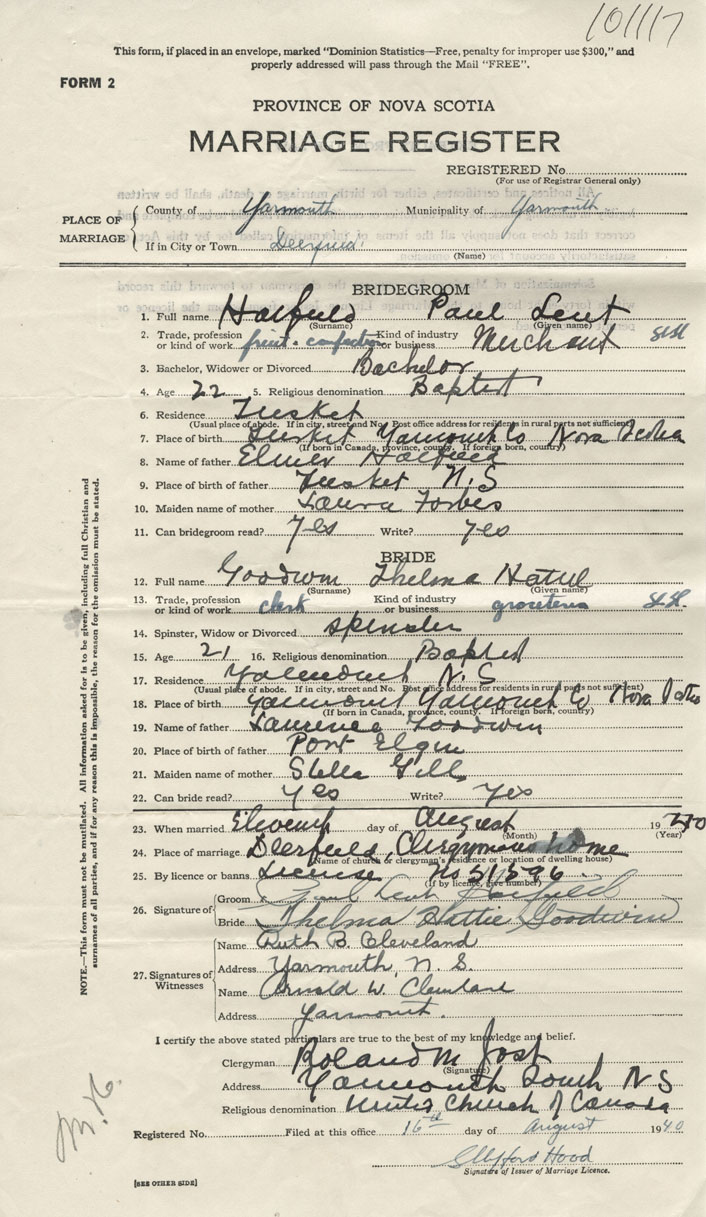 101117
This form, if placed in an envelope, marked "Dominion Statistics—Free, penalty for improper use $300," and
properly addressed will pass through the Mail "FREE".
FORM 2
PROVINCE OF NOVA SCOTIA
MARRIAGE REGISTER
REGISTERED No.
(For use of Registrar General only)
PLACE OF MARRIAGE
County of Yarmouth Municipality of Yarmouth
If in City or Town Deerfield
(Name)
BRIDEGROOM
1. Full name Hatfield Paul Lent
(Surname) (Given name)
2. Trade, profession or kind of work fruit & confection Kind of industry or business Merchant
3. Bachelor, Widower or Divorced Bachelor
4. Age 22 5. Religious denomination Baptist
6. Residence Tusket
(Usual place of abode. If in city, street and No. Post office address for residents in rural parts not sufficient)
7. Place of birth Tusket Yarmouth Co Nova Scotia
(If born in Canada, province, county. If foreign born, country)
8. Name of father Elmer Hatfield
9. Place of birth of father Tusket N.S
10. Maiden name of mother Laura Forbes
11. Can bridegroom read? Yes Write? Yes
BRIDE
12. Full name Goodwin Thelma Hattie
(Surname) (Given name)
13. Trade, profession or kind of work clerk Kind of industry or business groceteria
14. Spinster, Widow or Divorced Spinster
15. Age 21 16. Religious denomination Baptist
17. Residence Yarmouth N.S
(Usual place of abode. If in city, street and No. Post office address for residents in rural parts not sufficient)
18. Place of birth Yarmouth Yarmouth Co Nova Scotia
(If born in Canada, province, county. If foreign born, country)
19. Name of father Laurence Goodwin
20. Place of birth of father Port Elgin
21. Maiden name of mother Stella Gill
22. Can bride read? Yes Write? Yes
23. When married Eleventh day of August 1940
(Month) (Year)
24. Place of marriage Deerfield, Clergymans home
(Name of church or clergyman's residence or location of dwelling house)
25. By licence or banns License No 51596
(If by licence, give number)
26. Signature of
Groom x Paul Lent Hatfield
Bride Thelma Hattie Goodwin
27. Signatures of Witnesses
Name Ruth B. Cleveland
Address Yarmouth, N. S.
Name Arnold W. Cleveland
Address Yarmouth.
I certify the above stated particulars are true to the best of my knowledge and belief.
Clergyman Roland M Jost
(Signature)
Address Yarmouth South N S
Religious denomination United Church of Canada
Registered No. Filed at this office 16th day of August 1940
Clifford Hood
Signature of Issuer of Marriage Licence.
[SEE OTHER SIDE]
NOTE.—This form must not be mutilated. All information asked for is to be given, including full Christian and
surnames of all parties, and if for any reason this is impossible, the reason for the omission must be stated.